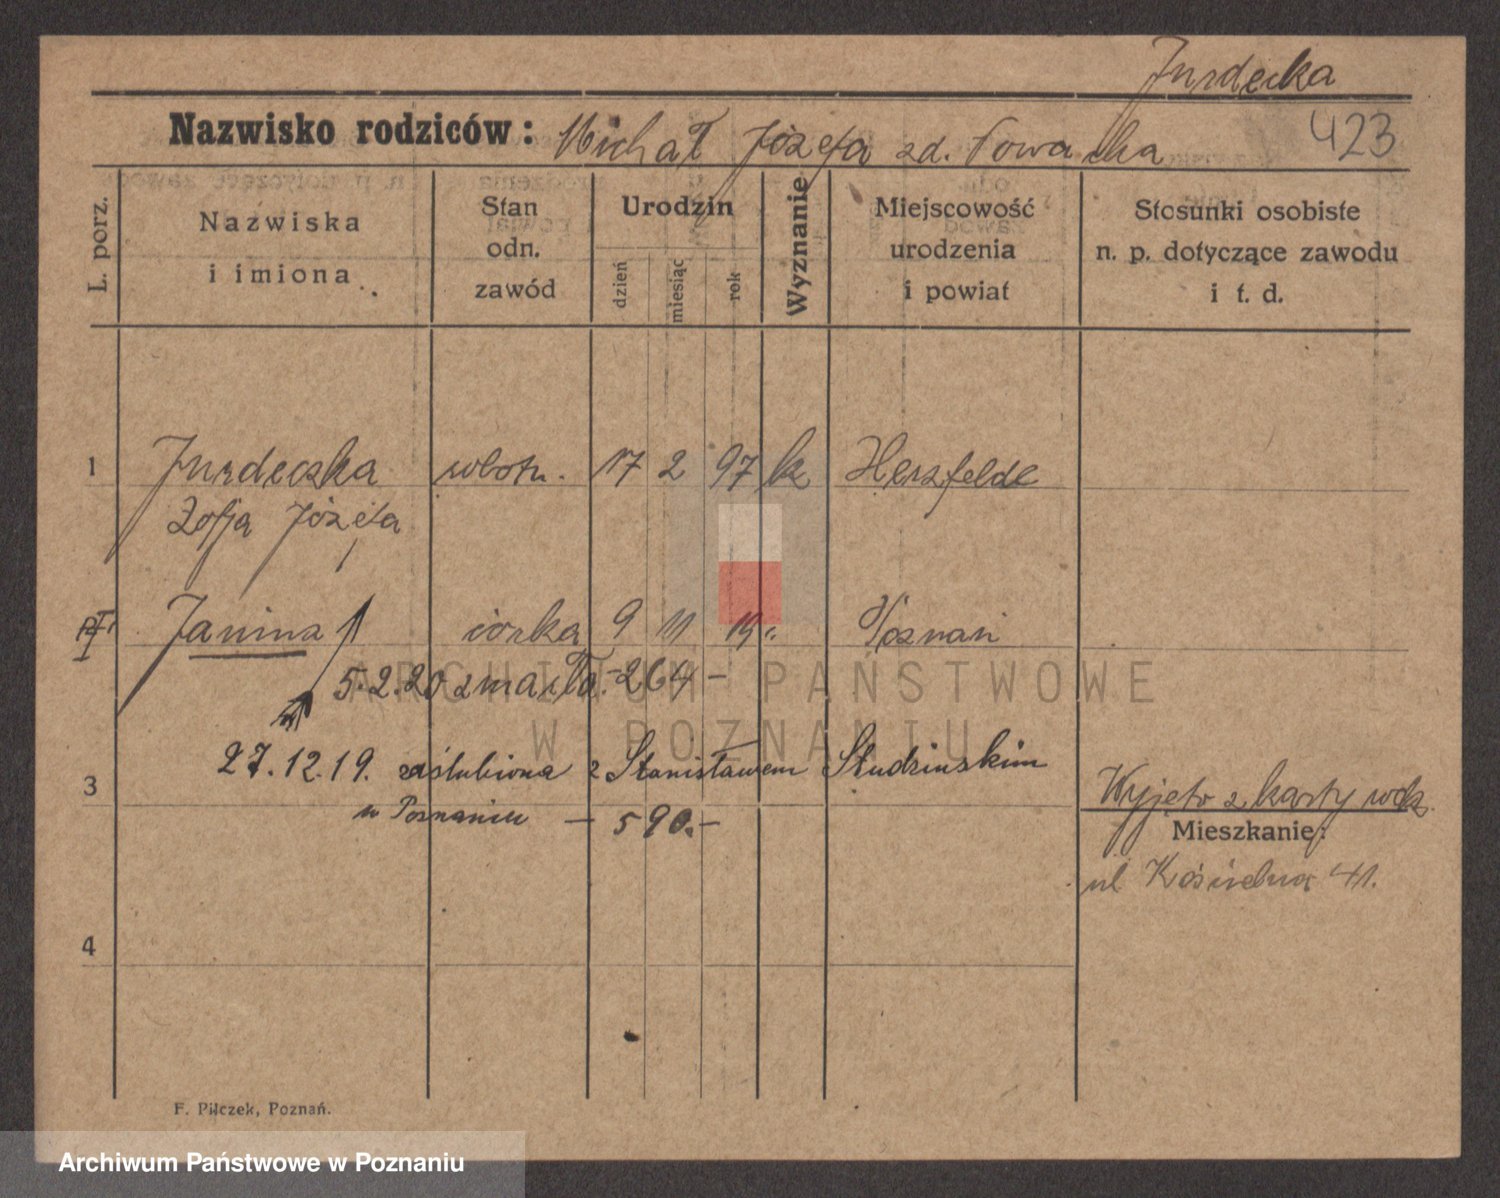 Nazwisko rodziców: Michał Józefa zd. Nowacka 423
L. porz.
Nazwiska
i imiona
Stan
odn.
zawód
Urodzin
dzień
miesiąc
rok
Wyznanie
Miejscowość
urodzenia
i powiat
Stosunki osobiste
n. p. dotyczące zawodu
i t. d.
1 Jurdeczka robotn. 17 2 97 k Herzfelde
Zofja Józefa
Janina córka 9 11 19. Poznań
5.2.20 zmarła. -264-
ARCHIWUM PAŃSTWOWE
W POZNANIU
27.12.19. zaślubiona z Stanisławem Studzinskim
3
w Poznaniu - 590.-
Wyjęto z karty
Mieszkanie:
ul Kościelna 41.
4
F. Pilczek, Poznań.
Archiwum Państwowe w Poznaniu